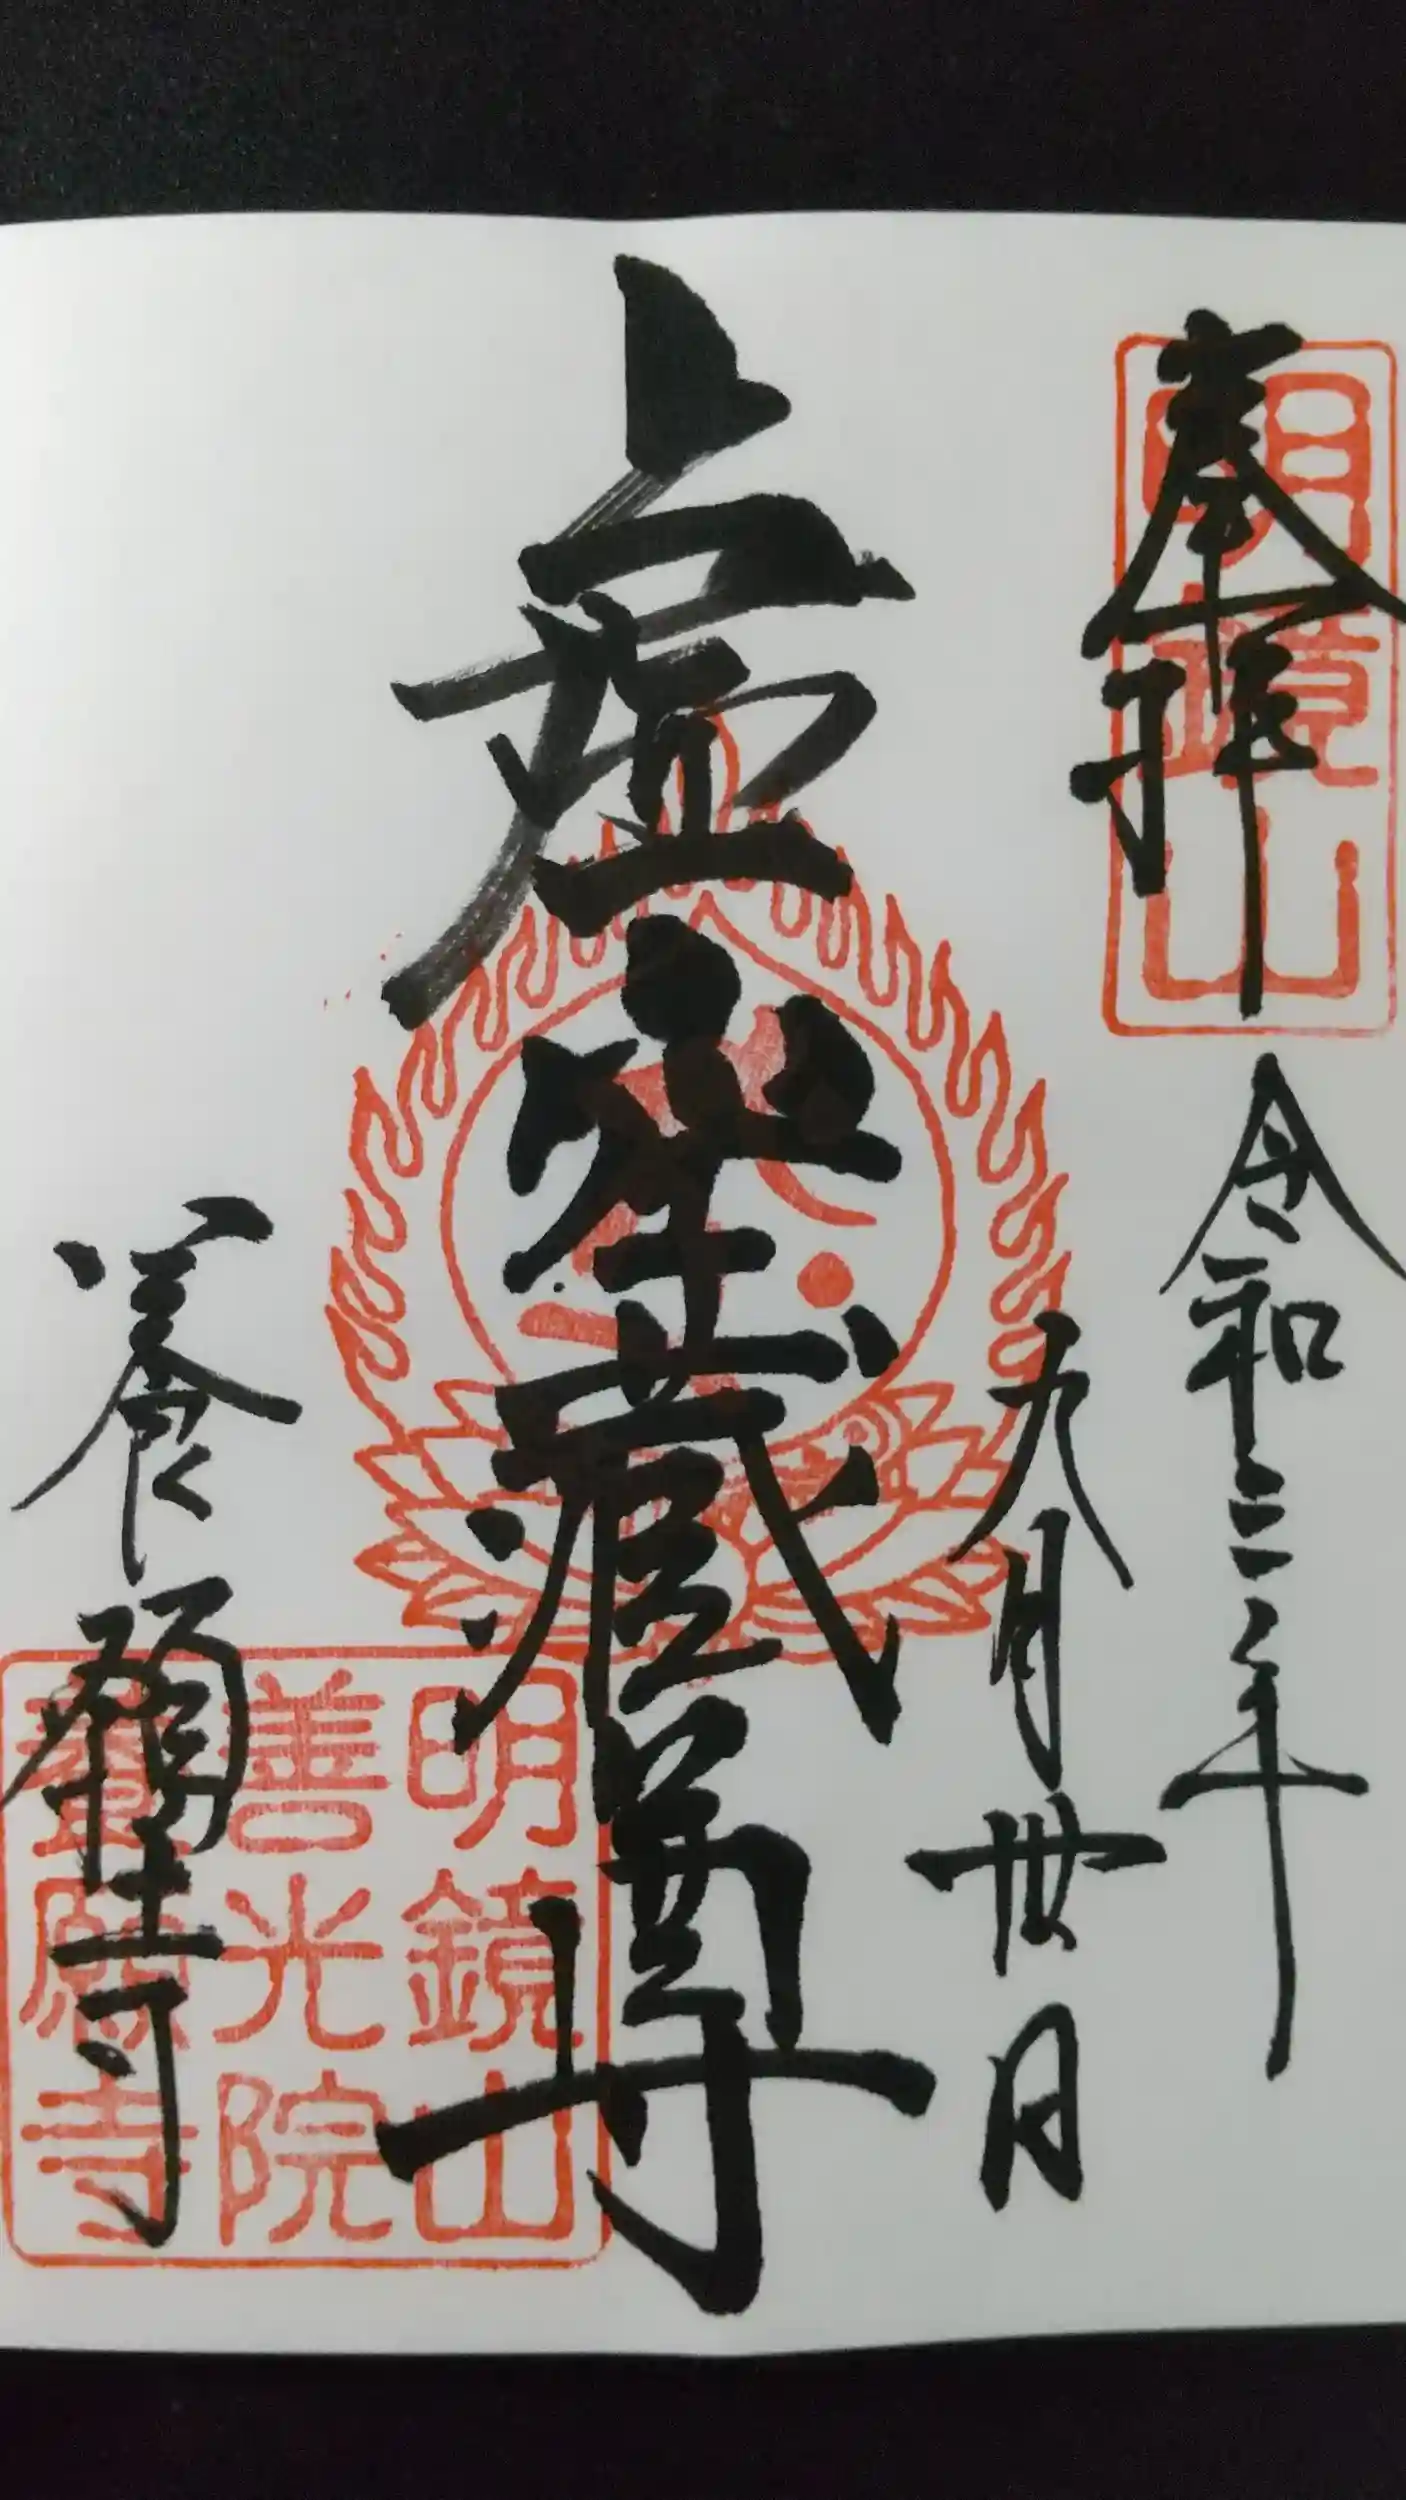 奉拝
明鏡山
令和三年
九月丗日
虚空蔵尊
養願寺
明鏡山
善光院
養願寺